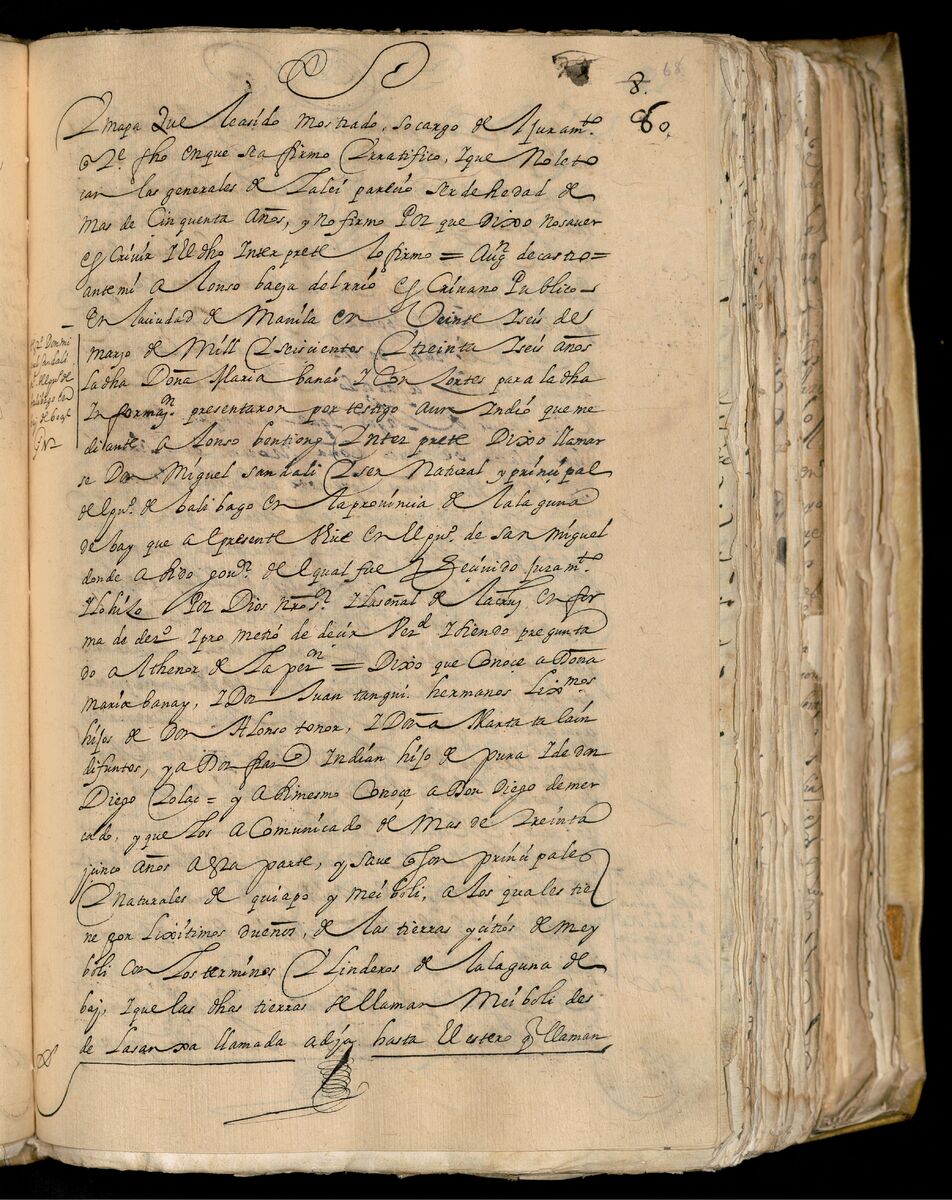 68
8.
60,
Y mapa Que le a sido mostrado, so cargo de l juramto.
q̃ Ne. fho en que se a firmo Y rratifico, Y que No le to
can las generales de la lei parecio ser de hedad de
mas de Cinquenta Años, y no firmo Por que Dixo no saver
escrivir Y el dho Interprete lo firmo = Augn de castro =
ante mi Alonso baeza del rrio escrivano Publico _
En la ciudad de Manila en Veinte Y seis de
março de Mill Y seiscientos Y treinta Y seis años
la dha Doña Maria banai Y Consortes para la dha
Informazn. presentaron por testigo a un Indio que me
diante Alonso bentiong Interprete Dixo llamar
se Don Miguel sandali Y ser Natural y principal
de el pu.o de balibago en la provincia de la laguna
de bay que al presente Vive en el pu.o de san miguel
donde a sido gov.or de el qual fue Recivido juramto.
Y lo hiço Por Dios nro Sr. Y la señal de la cruz en for
ma de dero. Y prometió de decir Verd Y siendo pregunta
do al thenor de la petn = Dixo que Conoce a Doña
maria banay, Y Don Juan tangui. hermanos lixmos.
hijos de Don Alonso tonor, Y Doña Marta talain
difuntos, y a Don franco Indian hijo de pura Y de don
Diego Colac = y asimesmo Conoce a Don Diego de mer
cado, y que los a Comunicado de mas de treinta
y cinco años a esta parte, y save q son principales
Y naturales de quiapo y meiboli, a los quales tie
ne por lixitimos dueños, de las tierras y citios de mey
boli con los terminos Y linderos de la laguna de
bay, Y que las dhas tierras se llaman Meiboli des
de la sanxa llamada adya hasta el estero q̃ llaman